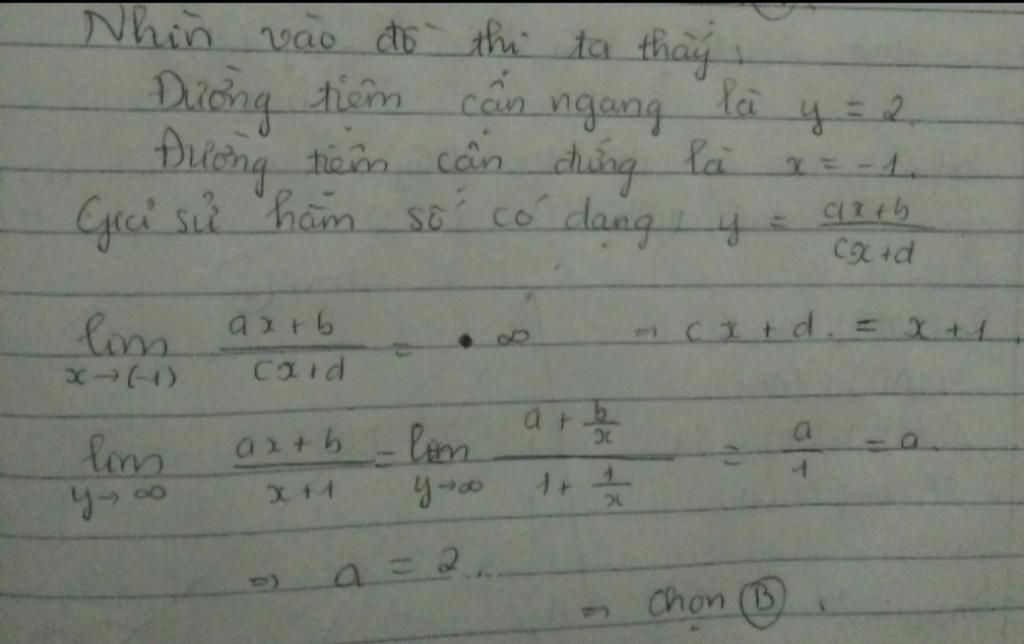 Nhìn vào đồ thị ta thấy:
Đường tiệm cận ngang là y = 2.
Đường tiệm cận đứng là x = -1.
Giả sử hàm số có dạng: y = \frac{ax+b}{cx+d}
\lim_{x \to (-1)} \frac{ax+b}{cx+d} = \infty ⇒ cx + d = x + 1
\lim_{y \to \infty} \frac{ax+b}{x+1} = \lim_{y \to \infty} \frac{a + \frac{b}{x}}{1 + \frac{1}{x}} = \frac{a}{1} = a.
⇒ a = 2..
⇒ chọn Ⓑ.